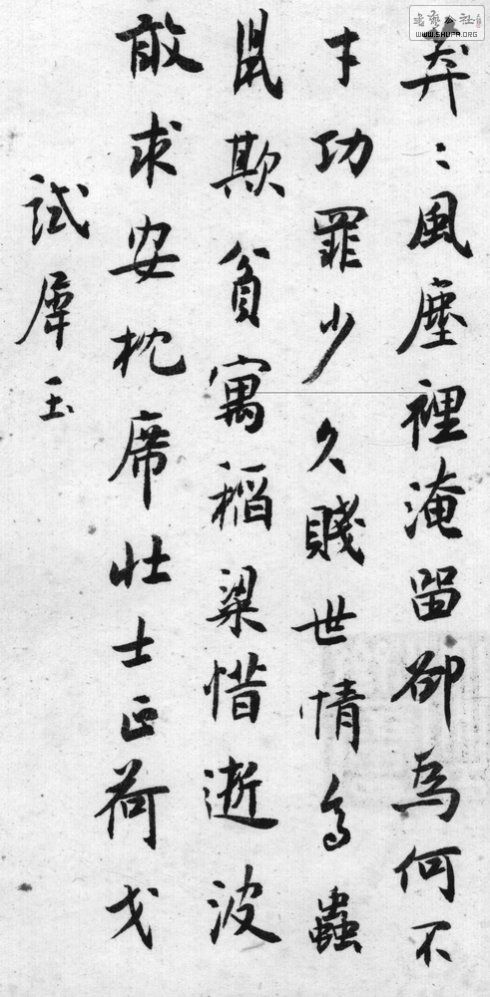 莽〻風塵裡淹留卻為何不
才功罪少久賤世情多蟲
鼠欺貧寓稻粱惜逝波
敢求安枕席壯士正荷戈
試犀玉
書藝公社
WWW.SHUFA.ORG